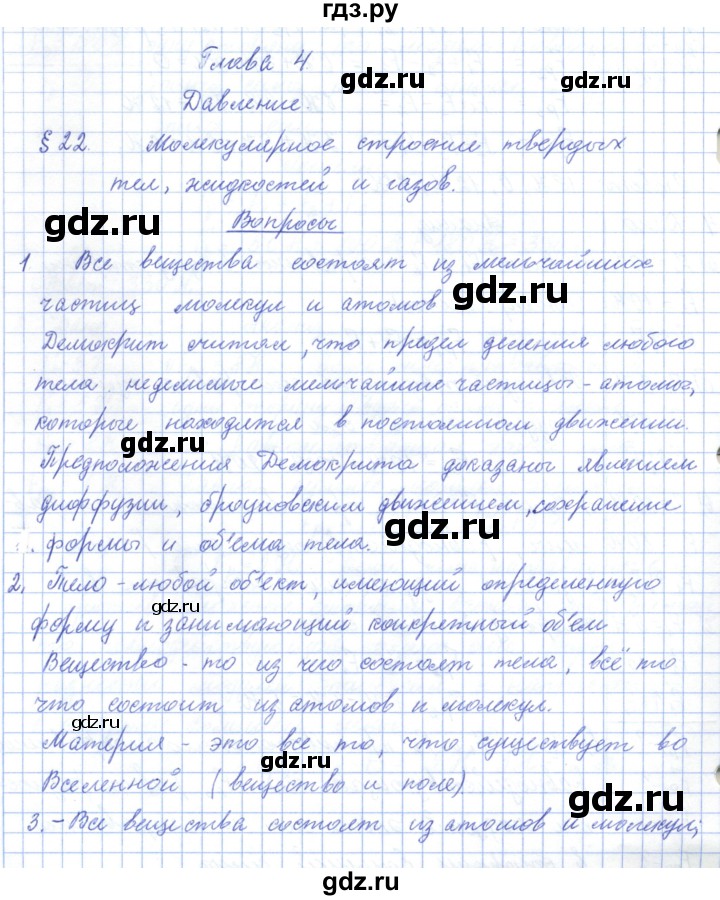 гдз.ру
Глава 4
gdz.ru
Давление.
gdz.ru
§ 22. Молекулярное строение твердых
тел, жидкостей и газов.
gdz.ru
Вопросы
1 Все вещества состоят из мельчайших
частиц молекул и атомов
gdz.ru
Демокрит считал, что предел деления любого
тела неделимые мельчайшие частицы - атомы,
которые находятся в постоянном движении.
gdz.ru
Предположения Демокрита доказаны явлением
диффузии, броуновским движением, сохранение
gdz.ru
формы и объема тела.
2. Тело - любой объект, имеющий определенную
форму и занимающий конкретный объем
gdz.ru
Вещество - то из чего состоят тела, всё то
что состоит из атомов и молекул.
gdz.ru
Материя - это все то, что существует во
gdz.ru
Вселенной (вещество и поле)
gdz.ru
3. - Все вещества состоят из атомов и молекул;
gdz.ru
gdz.ru